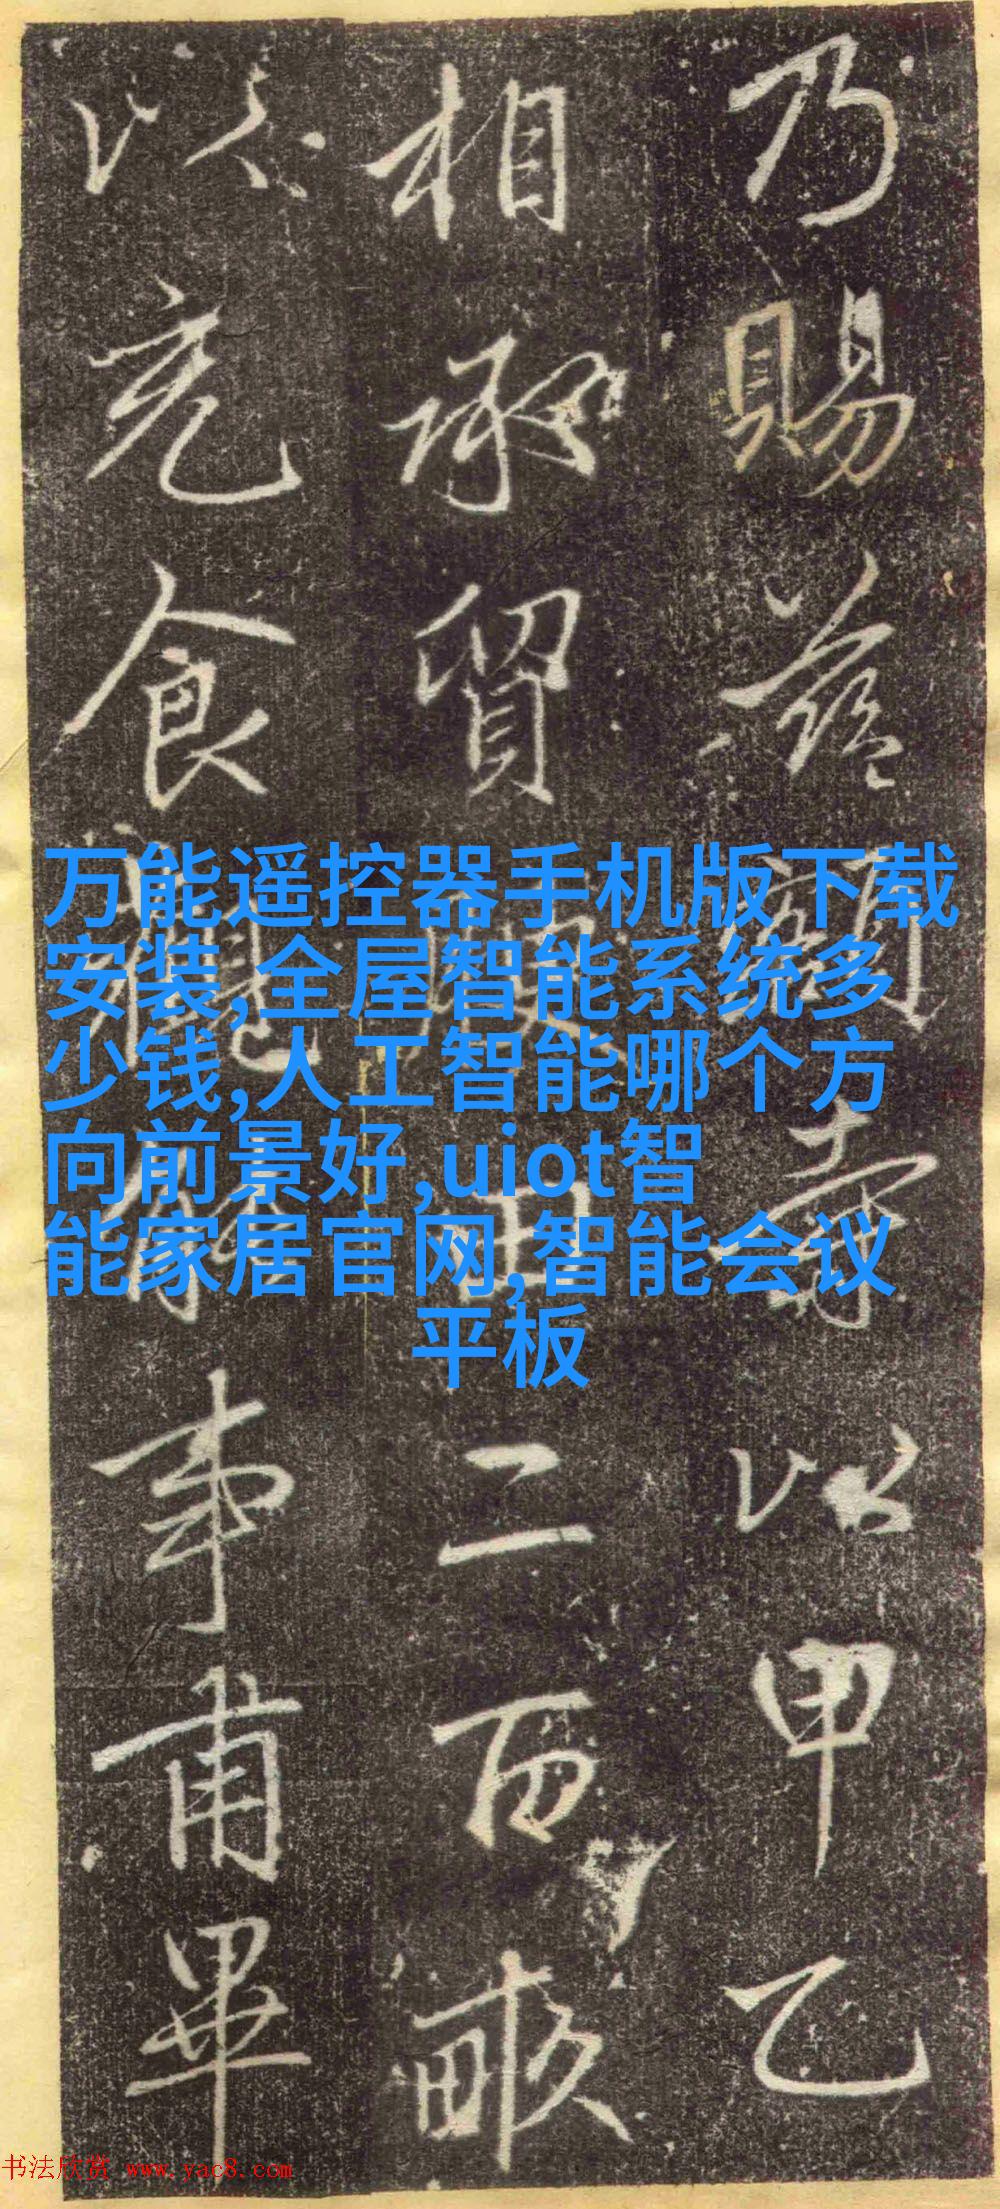 乃賜壽以甲乙
相承貿田二百畝
以充食事甫畢
万能遥控器手机版下载
安装,全屋智能系统多
少钱,人工智能哪个方
向前景好,uiot智
能家居官网,智能会议
平板
书法欣赏 www.yac8.com